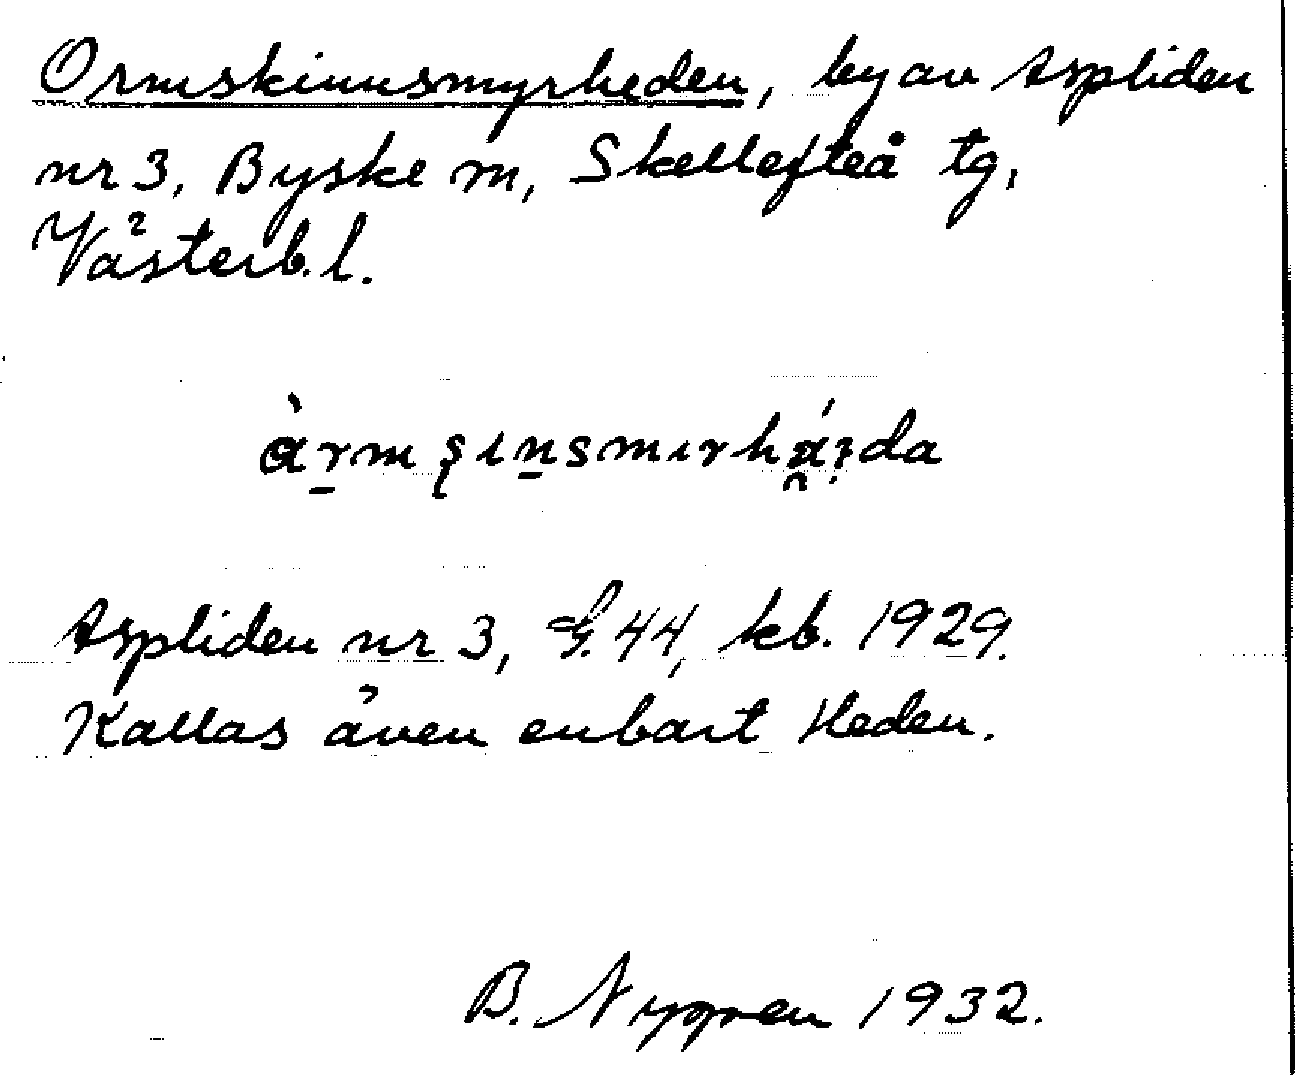 Ormskinnsmyrheden, by av Aspliden
nr 3, Byske sn, Skellefteå tg,
Västerb. l.
Aspliden nr 3, G. 44, kb. 1929.
Kallas även enbart Heden.
B. Nygren 1932.